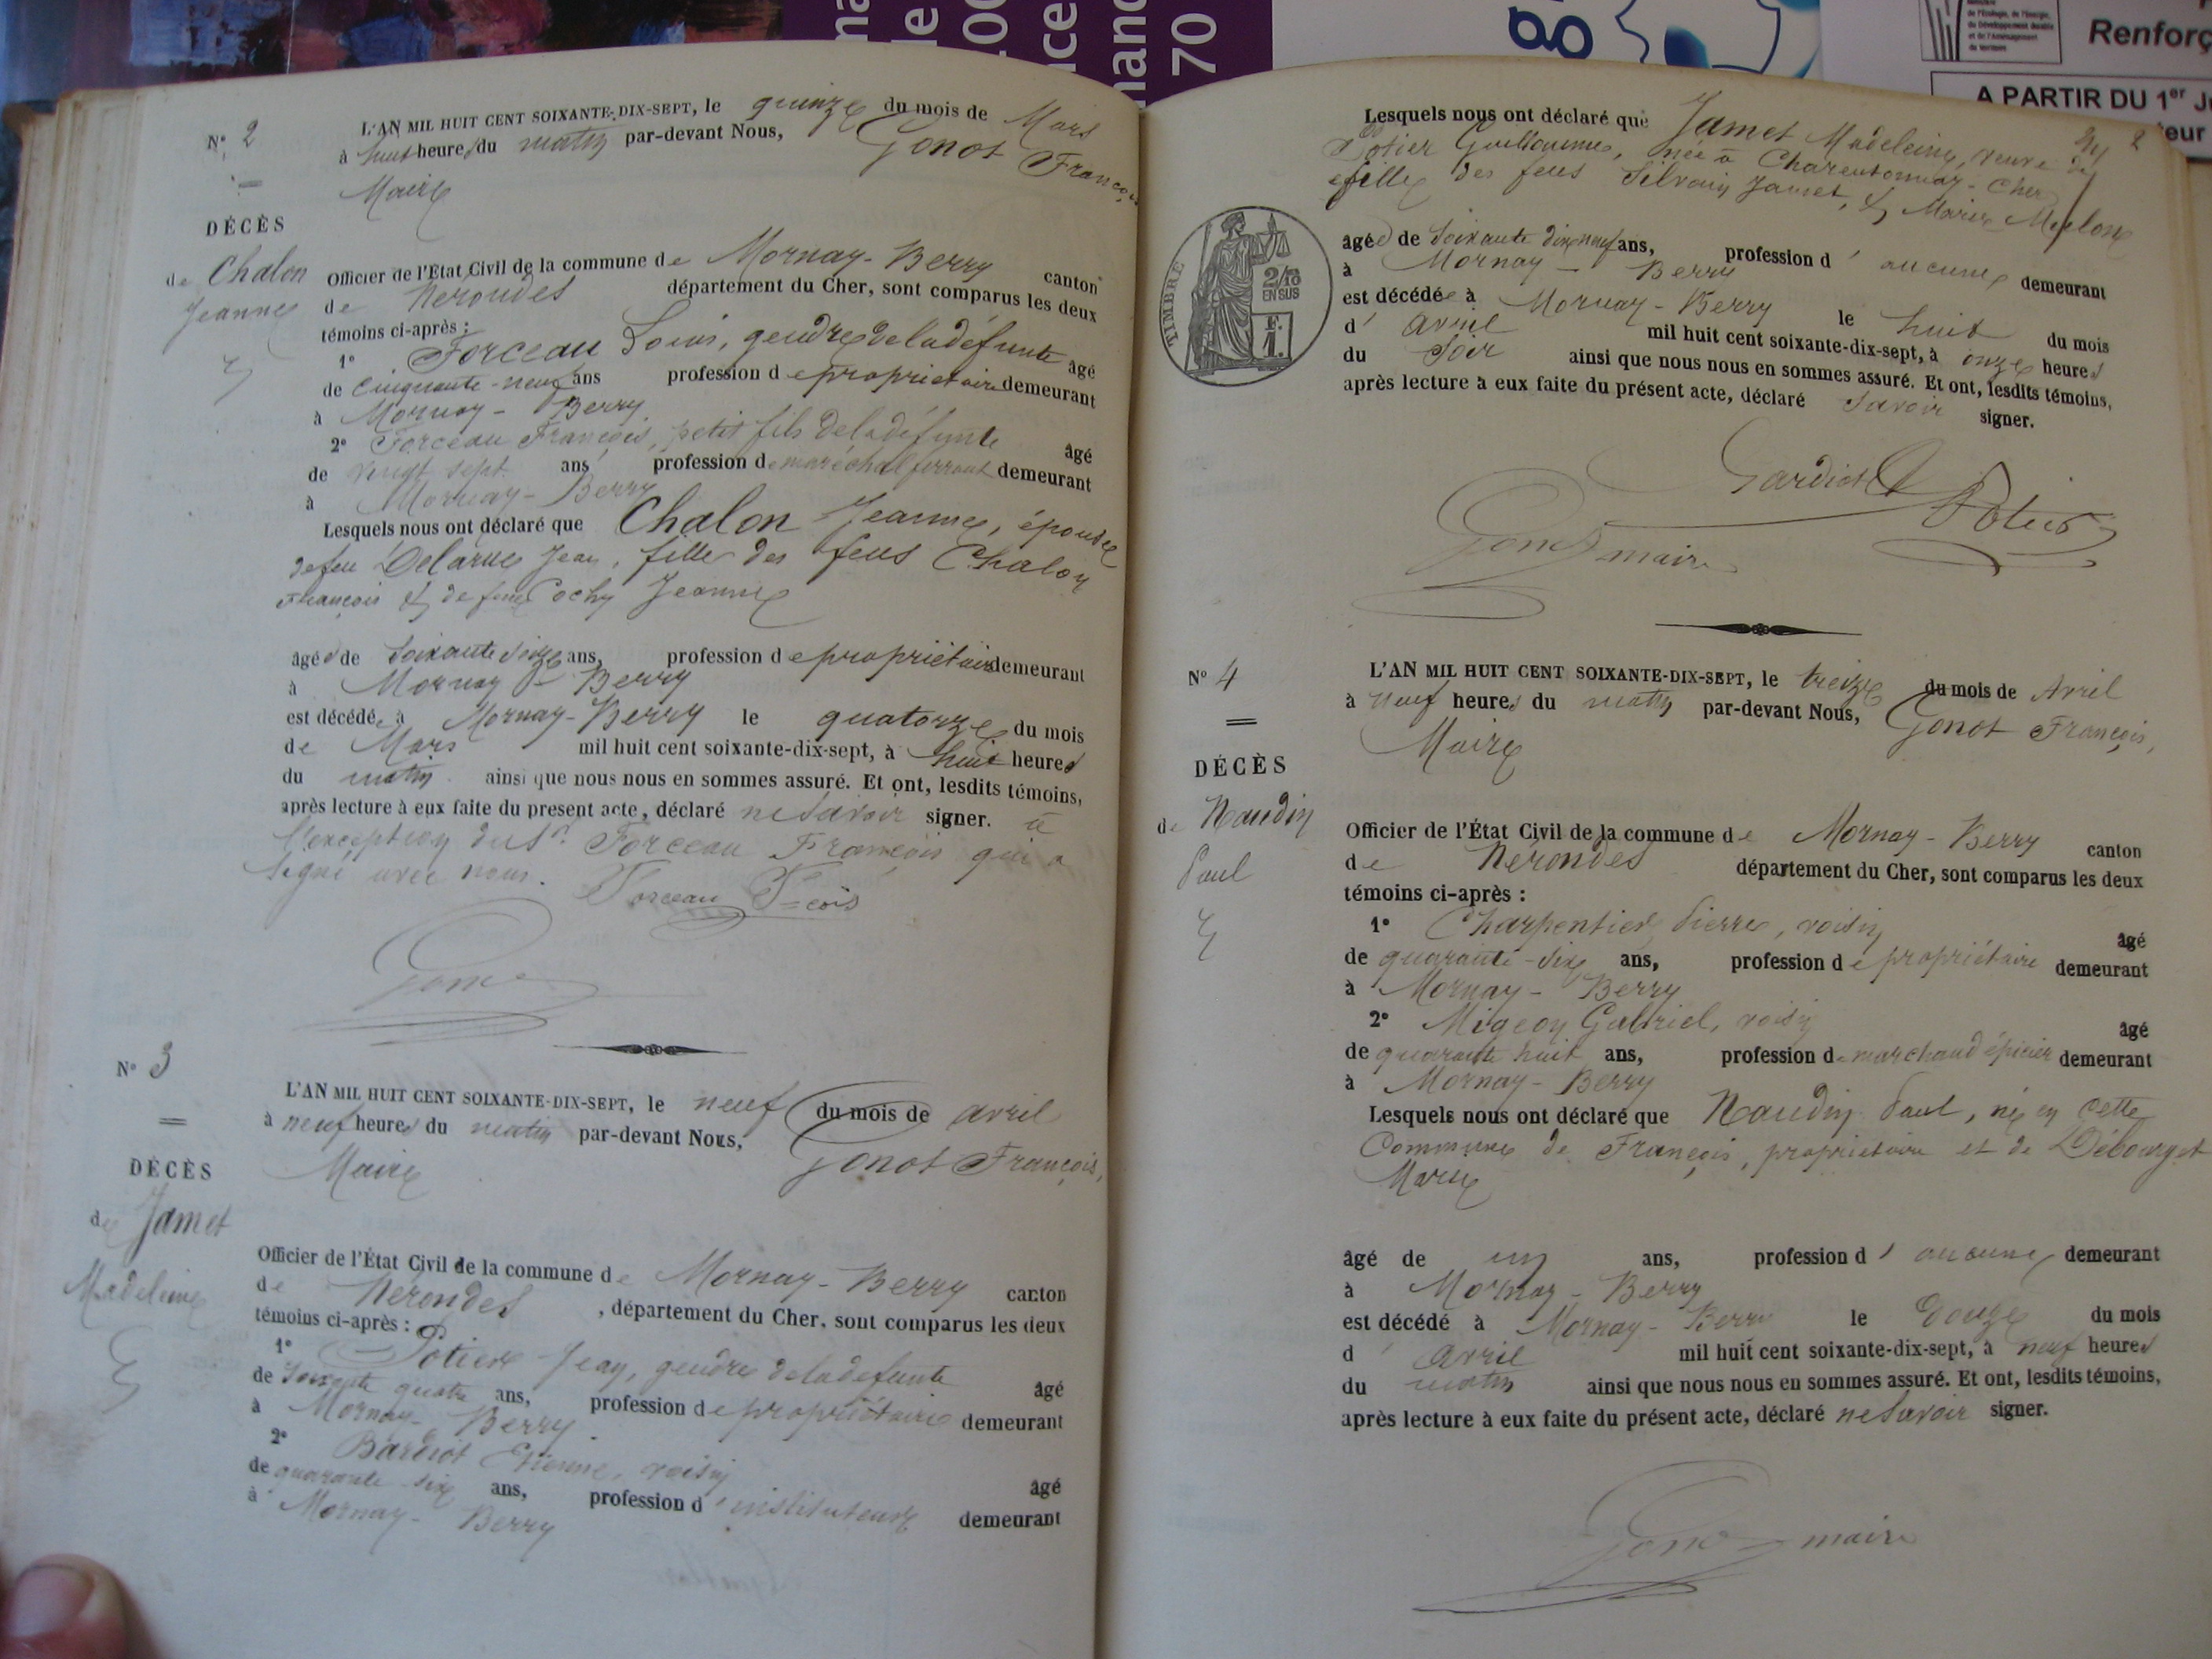 N° 2
L'AN MIL HUIT CENT SOIXANTE-DIX-SEPT, le quinze du mois de Mars
à huit heures du matin par-devant Nous, Gonot François
Maire
DÉCÈS
de Chalon
Jeanne
Officier de l'État Civil de la commune de Mornay-Berry canton
de Nerondes département du Cher, sont comparus les deux
témoins ci-après :
1° Forceau Louis, gendre de la défunte âgé
de Cinquante-neuf ans profession de propriétaire demeurant
à Mornay-Berry
2° Forceau François, petit fils de la défunte âgé
de vingt sept ans profession de maréchal ferrant demeurant
à Mornay-Berry
Lesquels nous ont déclaré que Chalon Jeanne, épouse
de feu Delarue Jean, fille des feus Chalon
François & de feue Cochy Jeanne
âgée de soixante seize ans, profession de propriétaire demeurant
à Mornay-Berry
est décédée à Mornay-Berry le quatorze du mois
de Mars mil huit cent soixante-dix-sept, à huit heures
du matin ainsi que nous nous en sommes assuré. Et ont, lesdits témoins,
après lecture à eux faite du present acte, déclaré ne savoir signer. à
l'exception du Sr. Forceau François qui a
signé avec nous. Forceau F=cois
Gonot
N° 3
L'AN MIL HUIT CENT SOIXANTE-DIX-SEPT, le neuf du mois de avril
à neuf heures du matin par-devant Nous, Gonot François,
Maire
DÉCÈS
de Jamet
Madeleine
Officier de l'État Civil de la commune de Mornay-Berry canton
de Nerondes, département du Cher, sont comparus les deux
témoins ci-après :
1° Potier Jean, gendre de la defunte âgé
de Soixante quatre ans, profession de propriétaire demeurant
à Mornay-Berry.
2° Etienne, voisin âgé
de quarante-six ans, profession d'instituteur demeurant
à Mornay-Berry
2
Lesquels nous ont déclaré que Jamet Madeleine, veuve de
Potier Guillaume, née à Charentonnay-Cher
fille des feus Silvain Jamet, & Marie
TIMBRE
2/10
EN SUS
F.
1.
âgée de soixante dix neuf ans, profession d'aucune demeurant
à Mornay-Berry
est décédée à Mornay-Berry le huit du mois
d'Avril mil huit cent soixante-dix-sept, à onze heures
du Soir ainsi que nous nous en sommes assuré. Et ont, lesdits témoins,
après lecture à eux faite du présent acte, déclaré savoir signer.
Potier
Gonot maire
N° 4
L'AN MIL HUIT CENT SOIXANTE-DIX-SEPT, le treize du mois de Avril
à neuf heures du matin par-devant Nous, Gonot François,
Maire
DÉCÈS
de Naudin
Paul
Officier de l'État Civil de la commune de Mornay-Berry canton
de Nérondes département du Cher, sont comparus les deux
témoins ci-après :
1° Charpentier Pierre, voisin âgé
de quarante-six ans, profession de propriétaire demeurant
à Mornay-Berry
2° Migeon Gabriel, voisin âgé
de quarante huit ans, profession de marchand épicier demeurant
à Mornay-Berry
Lesquels nous ont déclaré que Naudin Paul, né en cette
Commune de François, propriétaire et de Débourget
Marie
âgé de un ans, profession d'aucune demeurant
à Mornay-Berry
est décédé à Mornay-Berry le douze du mois
d'Avril mil huit cent soixante-dix-sept, à neuf heures
du matin ainsi que nous nous en sommes assuré. Et ont, lesdits témoins,
après lecture à eux faite du présent acte, déclaré ne savoir signer.
Gonot maire
70
de l'Écologie, de l'Énergie,
du Développement durable
et de l'Aménagement
du territoire
Renforç
A PARTIR DU 1er
teur